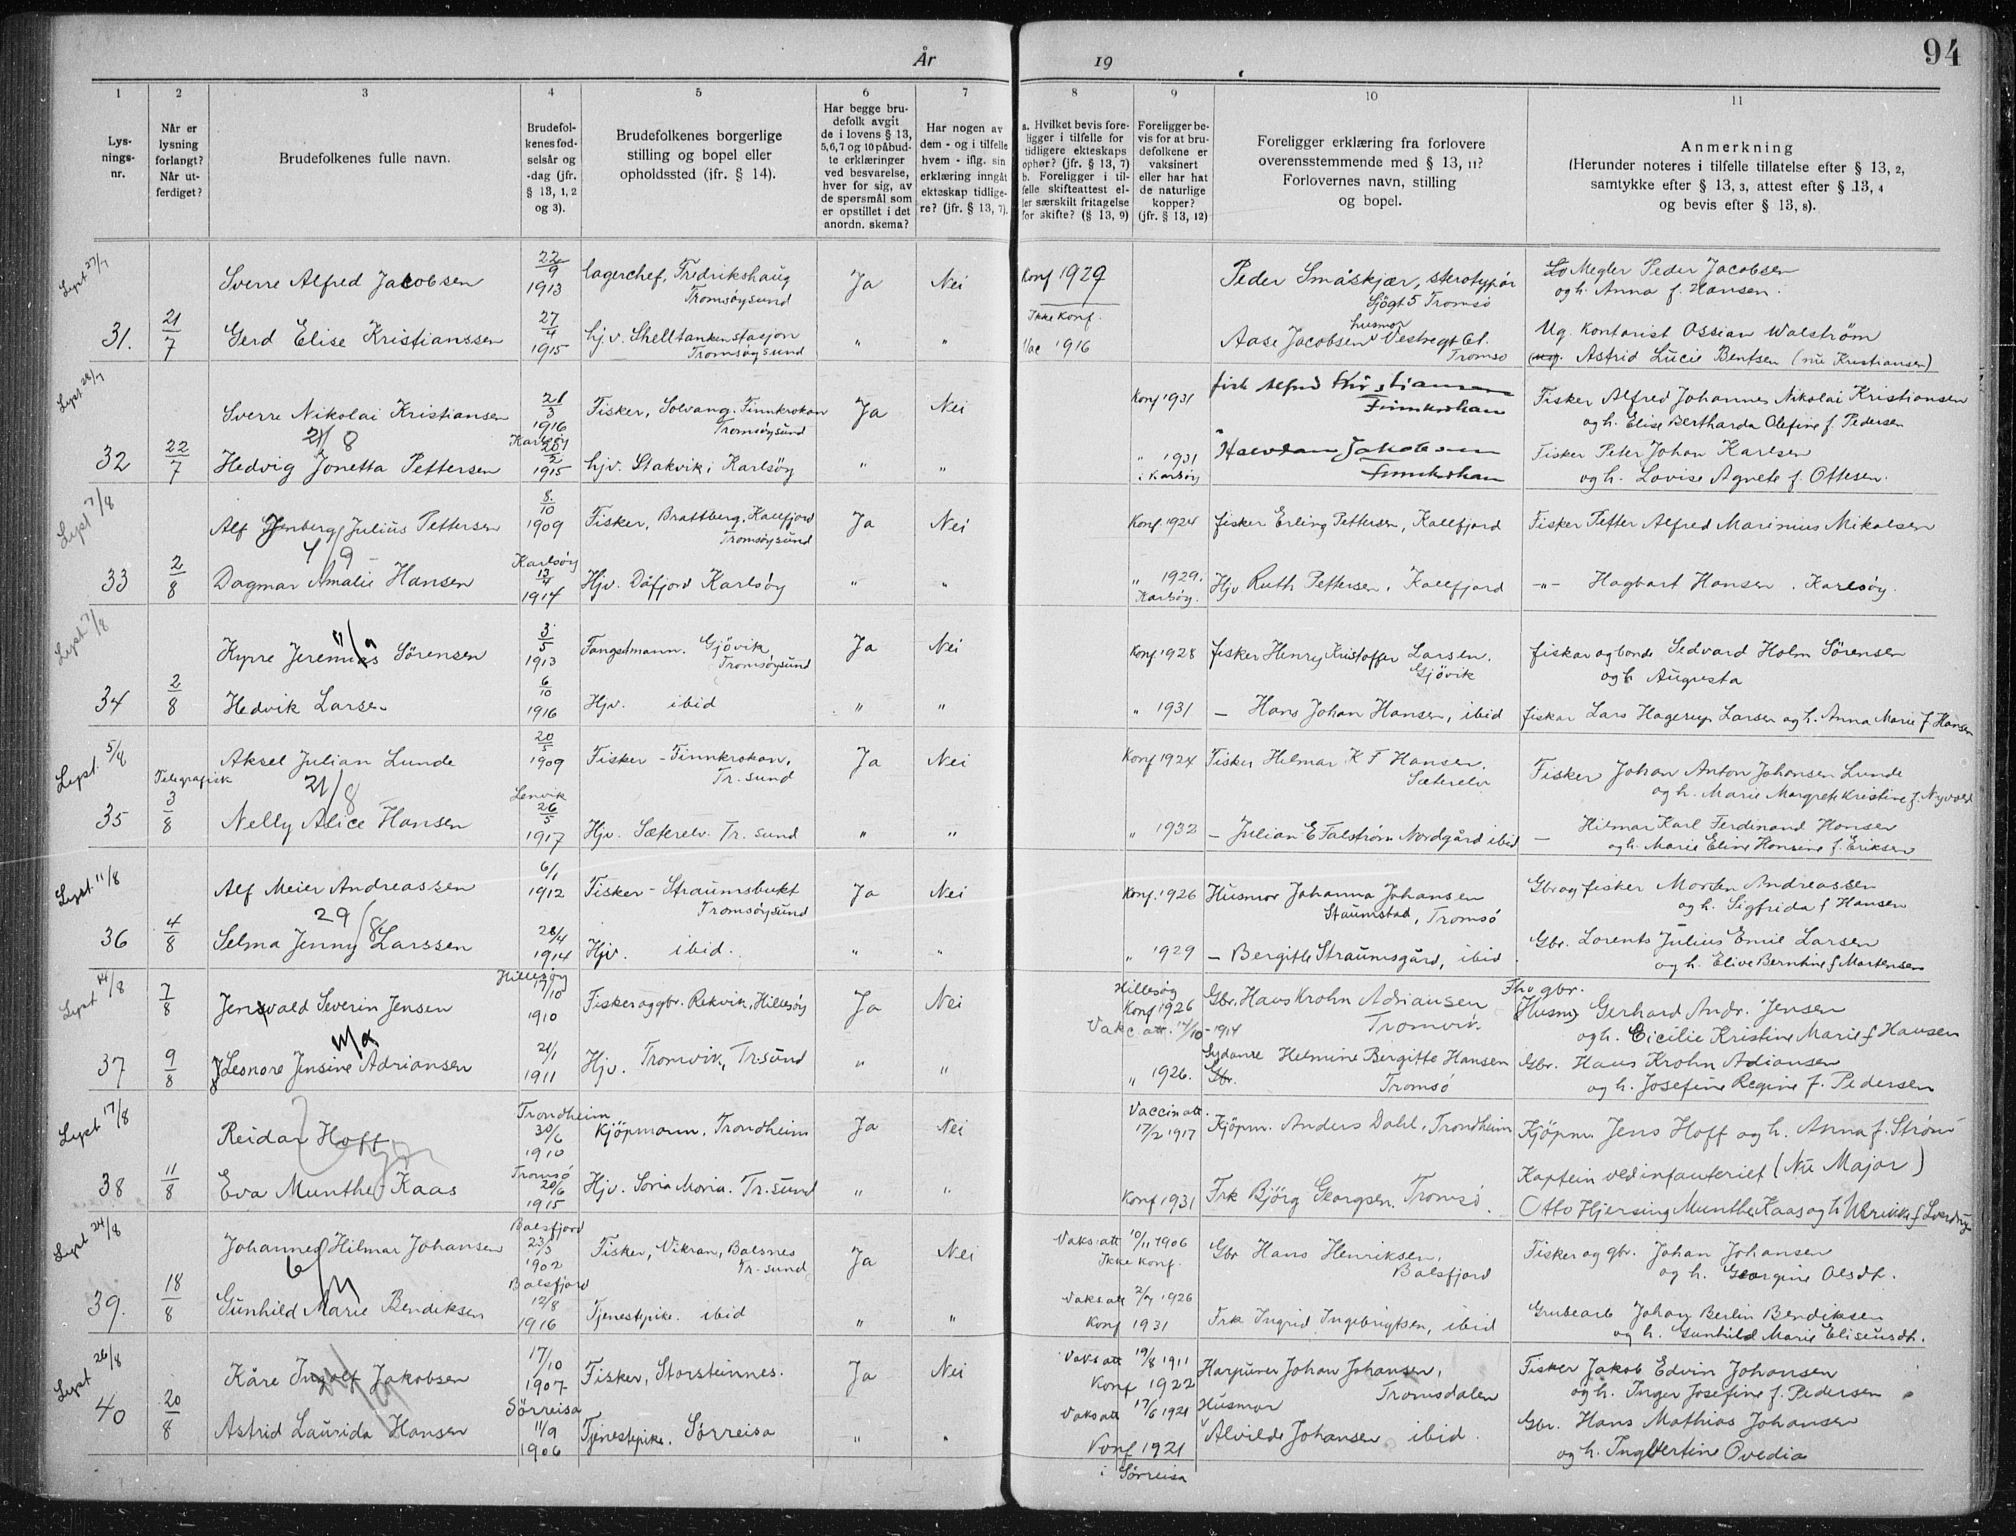 År 19
94
1 2 3 4 5 6 7 8 9 10 11
Lys-
nings-
nr.
Når er
lysning
forlangt?
Når ut-
ferdiget?
Brudefolkenes fulle navn.
Brudefol-
kenes fød-
selsår og
-dag (jfr.
§ 13, 1, 2
og 3).
Brudefolkenes borgerlige
stilling og bopel eller
opholdssted (jfr. § 14).
Har begge bru-
defolk avgit
de i lovens § 13,
5,6,7 og 10 påbud-
te erklæringer
ved besvarelse,
hver for sig, av
de spørsmål som
er opstillet i det
anordn. skema?
Har nogen av
dem - og i tilfelle
hvem - iflg. sin
erklæring inngåt
ekteskap tidlige-
re? (jfr. § 13, 7).
a. Hvilket bevis fore-
ligger i tilfelle for
tidligere ekteskaps
ophør? (jfr. § 13, 7)
b. Foreligger i til-
felle skifteattest el-
ler særskilt fritagelse
for skifte? (§ 13, 9)
Foreligger be-
vis for at bru-
defolkene er
vaksinert
eller har hat
de naturlige
kopper?
(jfr. § 13, 12)
Foreligger erklæring fra forlovere
overensstemmende med § 13, 11?
Forlovernes navn, stilling
og bopel.
Anmerkning
(Herunder noteres i tilfelle tillatelse efter § 13, 2,
samtykke efter § 13, 3, attest efter § 13, 4
og bevis efter § 13, 8).
Lyst 27/7
Sverre Alfred Jacobsen 22/9 1913 lagerchef, Fredrikshaug Ja Nei Konf 1929 Peder Småskjær, sterotypør Megler Peder Jacobsen
Tromsøysund Sjøgt 5 Tromsø og h. Anna f. Hansen.
31. 21/7 Gerd Elise Kristianssen 27/4 1915 hjv. Shelltankenstasjon " " Ikke konf. Vac 1916 Aase Jacobsen husmor Vestregt Ug. Kontorist Ossian Walstrøm
Tromsøysund Tromsø (ug). Astrid Lucie Bentsen (nu Kristiansen)
Lyst 28/7
Sverre Nikolai Kristiansen 21/3 1916 Fisker, Solvang. Finnkroken Ja Nei Konf 1931 fisk Alfred Kristiansen Fisker Alfred Johannes Nikolai Kristiansen
21/8 Tromsøysund Finnkroken og h. Elise Bertharda Olefine f. Pedersen
32 22/7 Hedvig Jonetta Pettersen Karlsøy 20/2 1915 hjv. Stakvik i Karlsøy " " " 1931 Halvdan Jakobsen Fisker Peter Johan Karlsen
i Karlsøy Finnkroken og h. Lovise Agnete f. Ottesen.
Lyst 7/8
Alf Julius Pettersen 8/10 1909 Fisker, Brattberg, Kallfjord Ja Nei Konf 1924 fisker Erling Pettersen, Kallfjord Fisker Petter Alfred Marinius Mikalsen
4/9 Tromsøysund
33 2/8 Dagmar Amalie Hansen Karlsøy 13/4 1914 Hjv. Dåfjord Karlsøy " " " 1929. Karlsøy. Hjv Ruth Pettersen, Kallfjord -"- Hagbart Hansen. Karlsøy.
Lyst 7/8
Kyrre Jeremias Sörensen 3/5 1913 Fangstmann. Gjövik Ja Nei Konf. 1928 fisker Henry Kristoffer Larsen. fisker og bonde Sedvard Holm Sörensen
11/9 Tromsøysund Gjövik og h Augusta
34 2/8 Hedvik Larsen 6/10 1916 Hjv. ibid " " " 1931 — Hans Johan Hansen, ibid fisker Lars Hagerup Larsen og h. Anna Marie f Hansen
Lyst. 5/8
Aksel Julian Lunde 20/5 1909 Fisker - Finnkroken, Ja Nei Konf 1924 Fisker Helmar K F Hansen. Fisker Johan Anton Johansen Lunde
Telegrafisk 21/8 Tr. sund Sæterelv og h. Marie Margrete Kristine f. Nyvold
35 3/8 Nelly Alice Hansen Lenvik 26/5 1917 Hjv. Sæterelv. Tr. sund " " " 1932 — Julian E Falstrøm Nordgård ibid — Hilmar Karl Ferdinand Hansen
og h. Marie Eline Hansine f. Eriksen
Lyst. 11/8
Alf Meier Andreassen 6/1 1912 Fisker - Straumsbukt Ja Nei Konf. 1926 Husmor Johanna Johansen Gbr og fisker Morten Andreassen
29/8 Tromsøysund Staumstad, Tromsö og h. Sigfrida f Hansen
36 4/8 Selma Jenny Larssen 28/4 1914 Hjv. ibid. " " " 1929 — Bergitte Straumsgård, ibid Gbr. Lorents Julius Emil Larsen
og h. Elive Berntine f Martensen
Lyst 14/8
7/8 Jensvald Severin Jensen Hillesöy 17/10 1910 Fisker og gbr. Rekvik, Hillesöy Ja Nei Hillesøy Konf 1926 Gbr. Hans Krohn Adriansen Fhv gbr. Husm) Gerhard Andr. Jensen
11/9 Vakc. att. 14/10 - 1914 Tromvik. og h. Cicilie Kristine Marie f Hansen
37 9/8 Leonore Jensine Adriansen 21/1 1911 Hjv. Tromvik, Tr. sund " " " 1926. Sydame Helmine Bergitte Hansen Gbr. Hans Krohn Adiansen
Gbr. Tromsö og h. Josefine Regine f. Pedersen
Lyst 17/8
Reidar Hoff Trondheim 30/6 1910 Kjöpmann, Trondheim Ja Nei Vaccin att. 17/2 1917 Kjöpm. Anders Dahl, Trondheim Kjöpm. Jens Hoff og h. Anna f. Ström
Kaptein ved infanteriet (Nu Major)
38 11/8 Eva Munthe-Kaas Tromsö 20/6 1915 Hjv. Soria Moria. Tr. sund " " Konf 1931 Frk Björg Georgsen, Tromsö. Otto Hjersing Munthe Kaas og h Ulrikke f
Lyst 24/8
Johannes Hilmar Johansen Balsfjord 23/3 1902 Fisker, Vikran, Balsnes Ja Nei Vaks. att 10/11 1906 Gbr Hans Henriksen, Fisker og gbr. Johan Johansen
Tr. sund Ikke konf. Balsfjord og h. Georgine Olsdt.
39. 18/8 Gunhild Marie Bendiksen Balsfjord 12/8 1916 Tjenestepike. ibid " " Vaks att 2/7 1926 Konf 1931 Frk Ingrid Ingebrigtsen, ibid Grubearb Johan Berlin Bendiksen
og h. Gunhild Marie Elisusdt.
Lyst 26/8
Kåre Ingolf Jakobsen 17/10 1907 Fisker, Storsteinnes. Ja Nei Vaks att 19/8 1911 Harpuner Johan Johansen, Fisker Jakob Edvin Johansen
Konf 1922 Tromsdalen og h. Inger Josefine f. Pedersen
40 20/8 Astrid Laurida Hansen Sörreisa 11/9 1906 Tjenestepike. Sörreisa " " Vaks att 17/6 1921 Husmor Gbr. Hans Mathias Johansen
Konf 1921 Alvilde Johansen ibid. og h. Ingbertine Ovedia
i Sörreisa